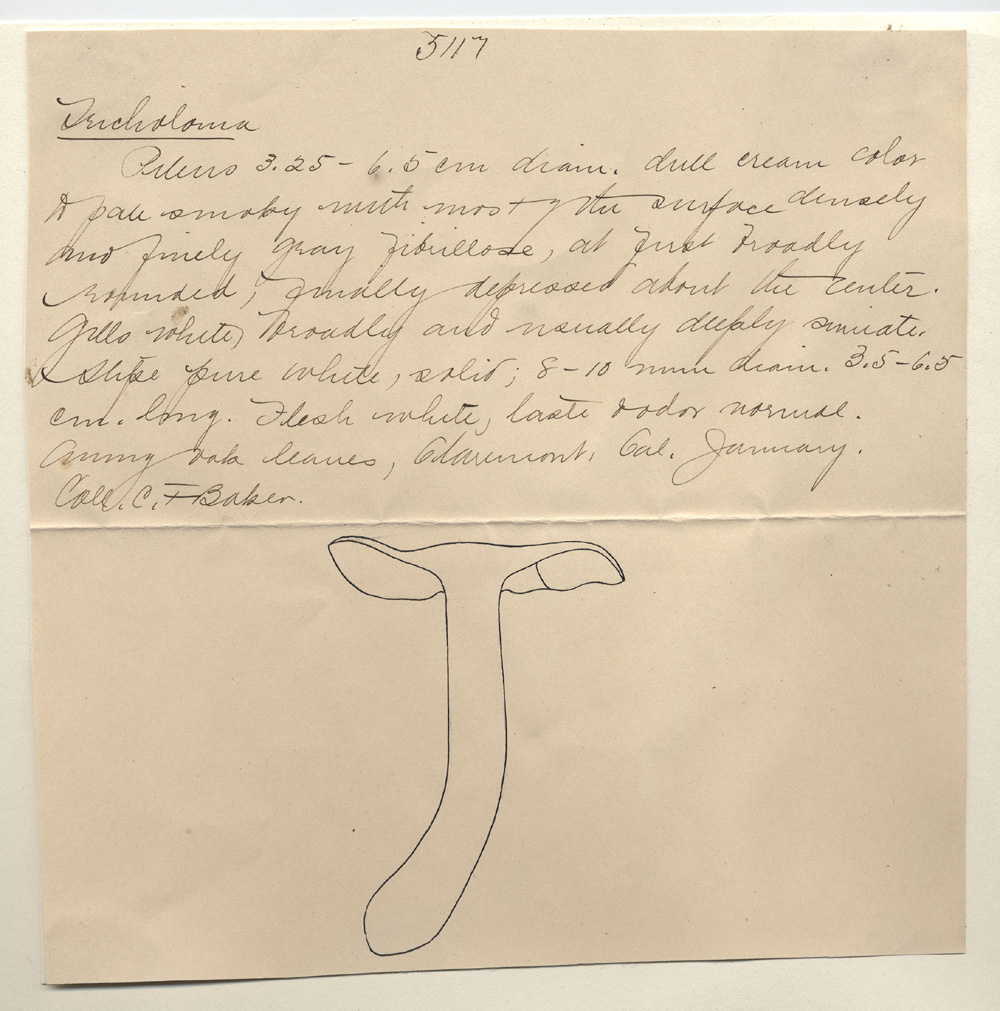 5117
Tricholoma
Pileus 3.25 - 6.5 cm diam. dull cream color
to pale smoky with most of the surface densely
and finely gray fibrillose, at first broadly
rounded, finally depressed about the center.
Gills white, broadly and usually deeply sinuate.
Stipe pure white, solid; 8-10 mm diam. 3.5-6.5
cm. long. Flesh white, taste & odor normal.
Among oak leaves, Claremont, Cal. January.
Coll. C. F. Baker.